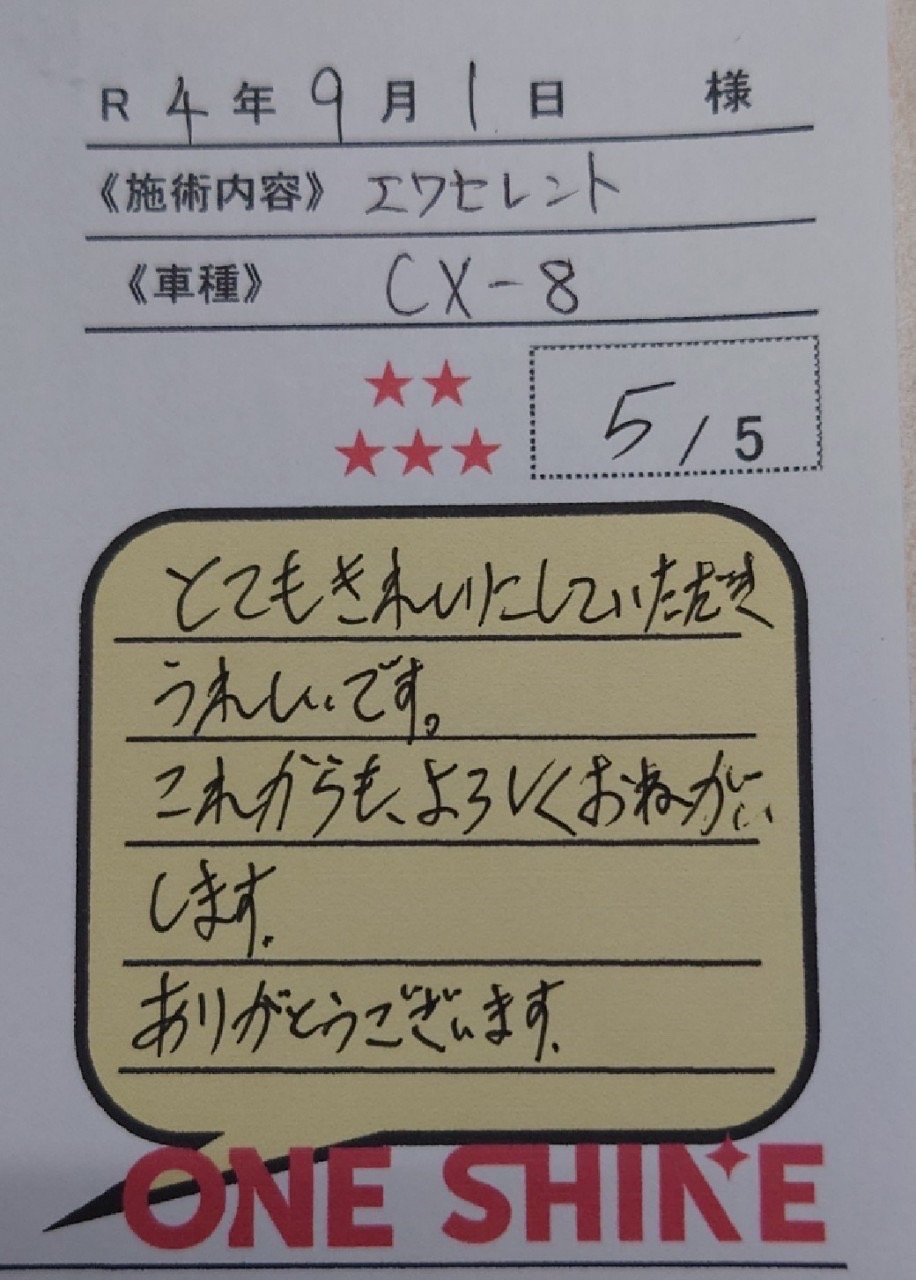 R 4年 9月 1日 様
《施術内容》 エクセレント
《車種》 CX-8
★★
★★★
5/5
とてもきれいにしていただき
うれしいです。
これからも、よろしくおねがい
します。
ありがとうございます。
ONE SHINE